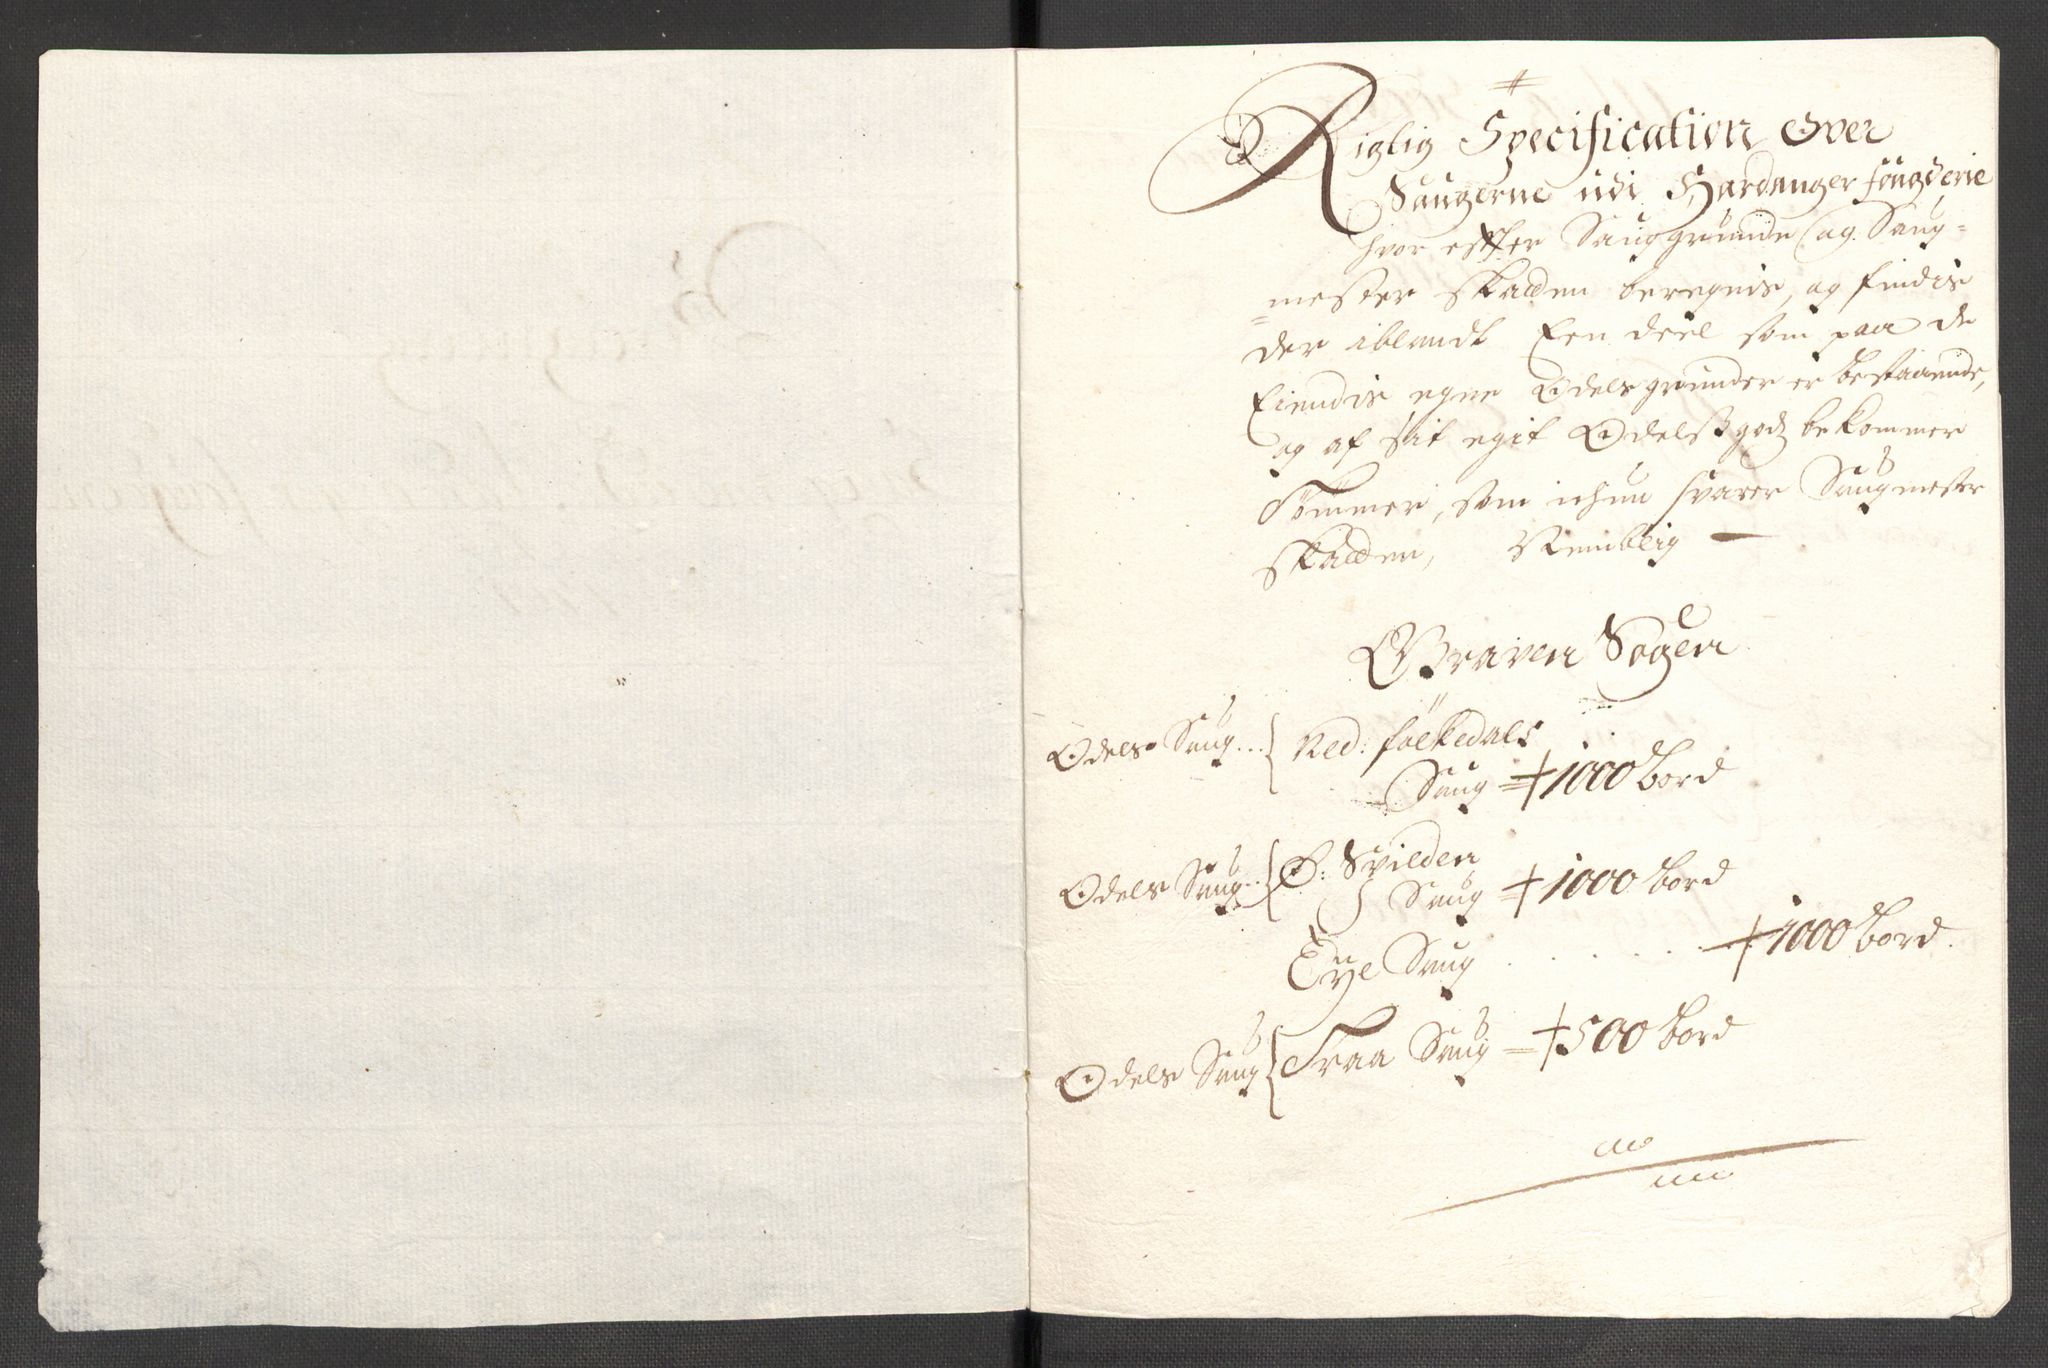 Rigtig Specification Over
Saugerne udi Hardanger fougderie
hvor effter Sauggrunde og Saug-
mester skatten beregnis, og findis
der iblandt Een deel som paa de
Eiendis egne Odels grunder er bestaaende,
og af sit egit Odelsgods bekommer
Tömmer, som ichun svarer Saugmester
skatten, Nemblig
Graven Sogen
Odels Saug... { Ned: folkedals
Saug = 1000 bord
Odels Saug.. { Ø: Spilden
Saug = 1000 bord
Eye Saug . . . . . 1000 bord.
Odels Saug { Traa Saug = 500 bord